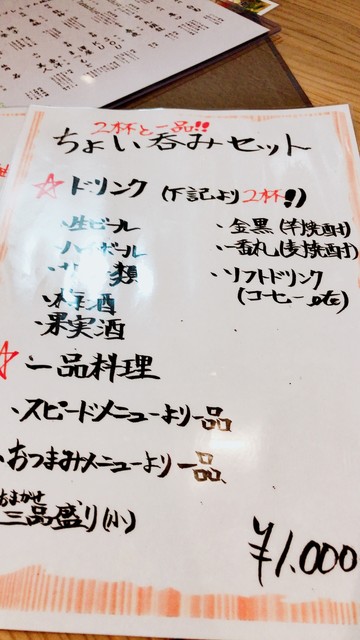 2杯と一品!!
ちょい呑みセット
☆ドリンク(下記より2杯!!)
・生ビール
・ハイボール
・サワー類
・梅酒
・果実酒
・金黒(芋焼酎)
・一番丸(麦焼酎)
・ソフトドリンク
(コーヒーetc)
☆一品料理
・スピードメニューより一品
・おつまみメニューより一品
おまかせ
三品盛り(小)
¥1,000